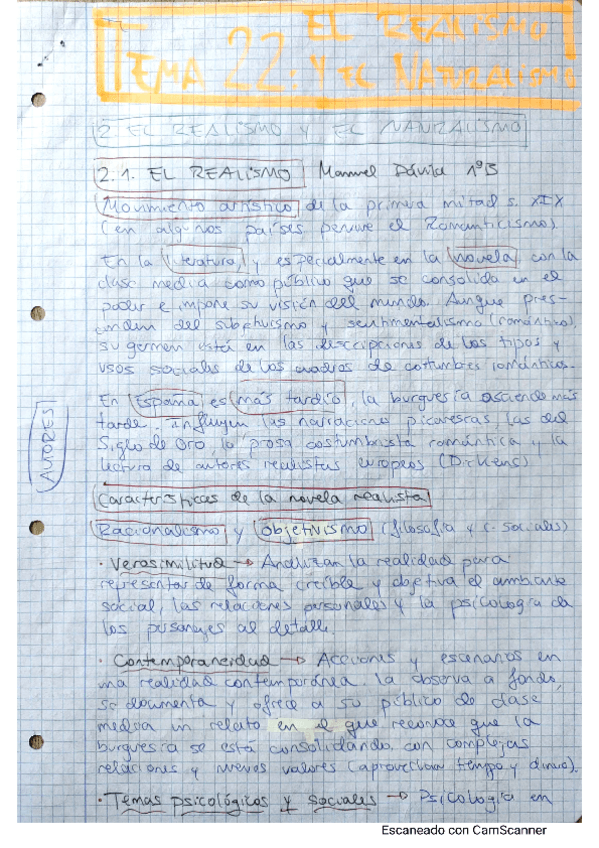 TEMA 22: EL REALISMO
Y EL NATURALISMO
2. EL REALISMO Y EL NATURALISMO
2.1. EL REALISMO Manuel Dávila 1ºB
Movimiento artístico de la primera mitad s. XIX
(en algunos países pervive el Romanticismo).
En la literatura y especialmente en la novela con la
clase media como público que se consolida en el
poder e impone su visión del mundo. Aunque pres-
cinden del subjetivismo y sentimentalismo (romántico),
su germen está en las descripciones de los tipos y
usos sociales de los cuadros de costumbres románticos.
En España es más tardío, la burguesía asciende más
tarde. influyen las narraciones picarescas, las del
Siglo de Oro, la prosa costumbrista romántica y la
lectura de autores realistas europeos (Dickens)
AUTORES
Características de la novela realista
Racionalismo y objetivismo (filosofía y c. sociales)
· Verosimilitud → Analizan la realidad para
representar de forma creíble y objetiva el ambiente
social, las relaciones personales y la psicología de
los personajes al detalle.
· Contemporaneidad → Acciones y escenarios en
una realidad contemporánea. la observa a fondo,
se documenta y ofrece a su público de clase
media un relato en el que reconoce que la
burguesía se está consolidando, con complejas
relaciones y nuevos valores (aprovechan tiempo y dinero).
· Temas psicológicos y sociales → Psicología en
Escaneado con CamScanner